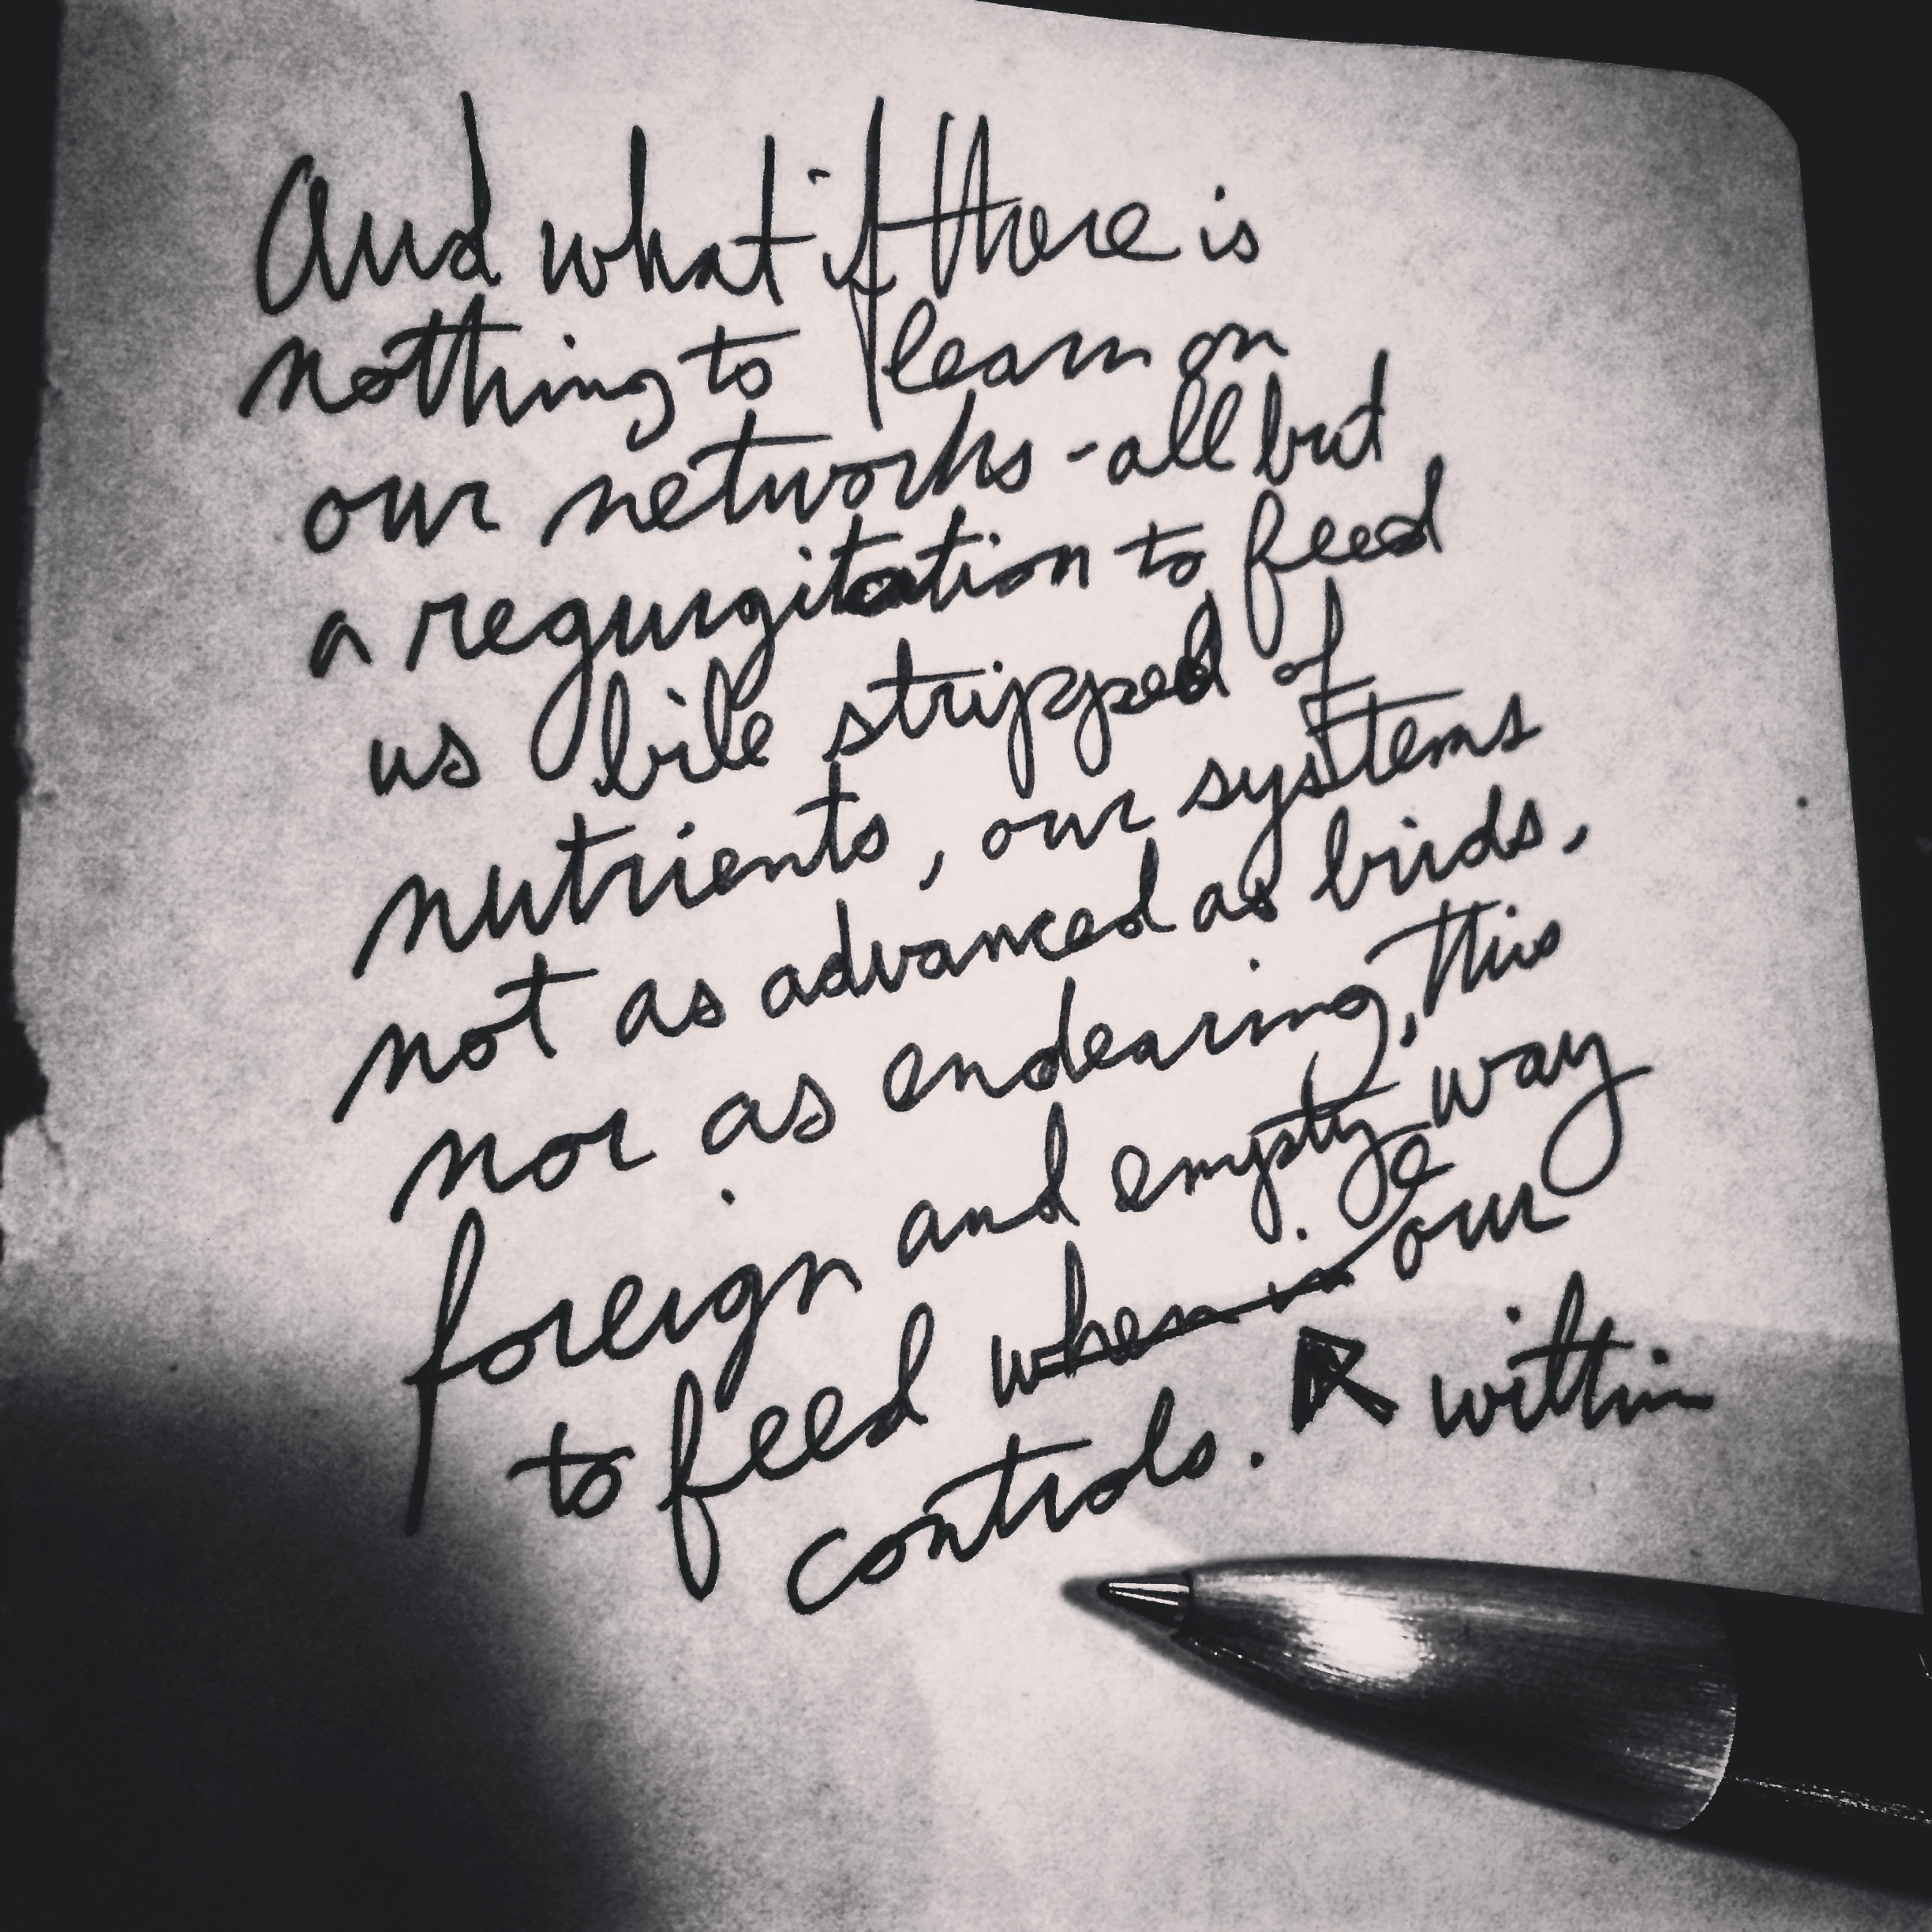 And what if there is
nothing to learn on
our networks - all but
a regurgitation to feed
us bile stripped of
nutrients, our systems
not as advanced as birds,
nor as endearing, this
foreign and empty way
to feed when in our
controls. within